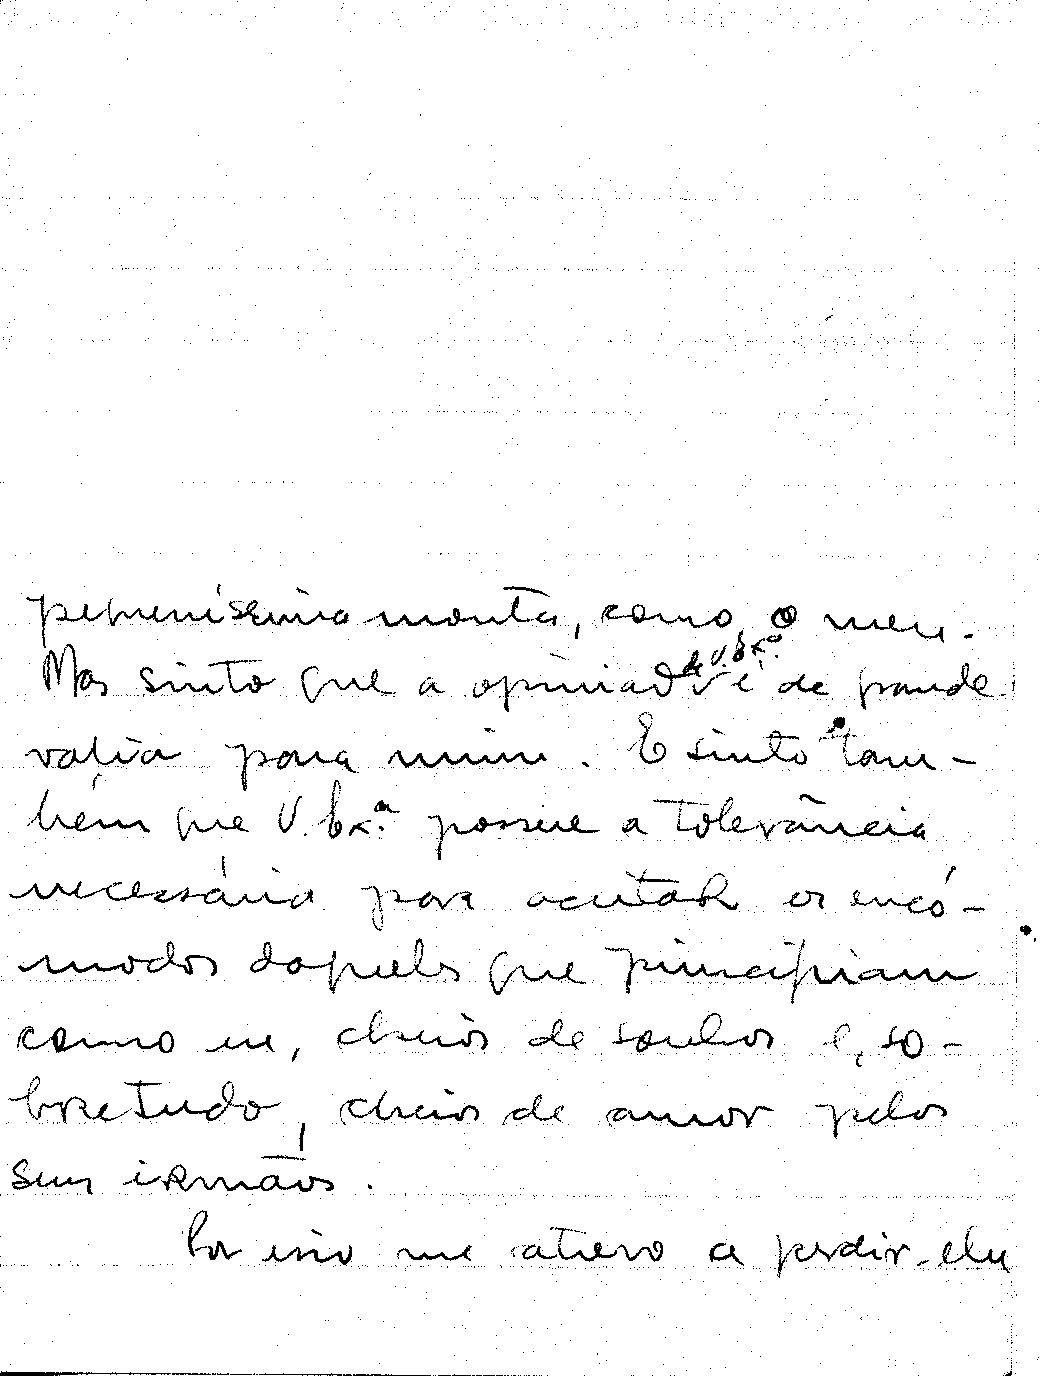 pequeníssima monta, como o meu.
Mas sinto que a opinião de V. Exª. é de grande
valia para mim. E sinto tam-
bém que V. Exª. possue a tolerância
necessária para aceitar os encó-
modos daqueles que principiam
como eu, cheios de sonhos e, so-
bretudo, cheios de amor pelos
seus irmãos.
Por isso me atrevo a pedir-lhe